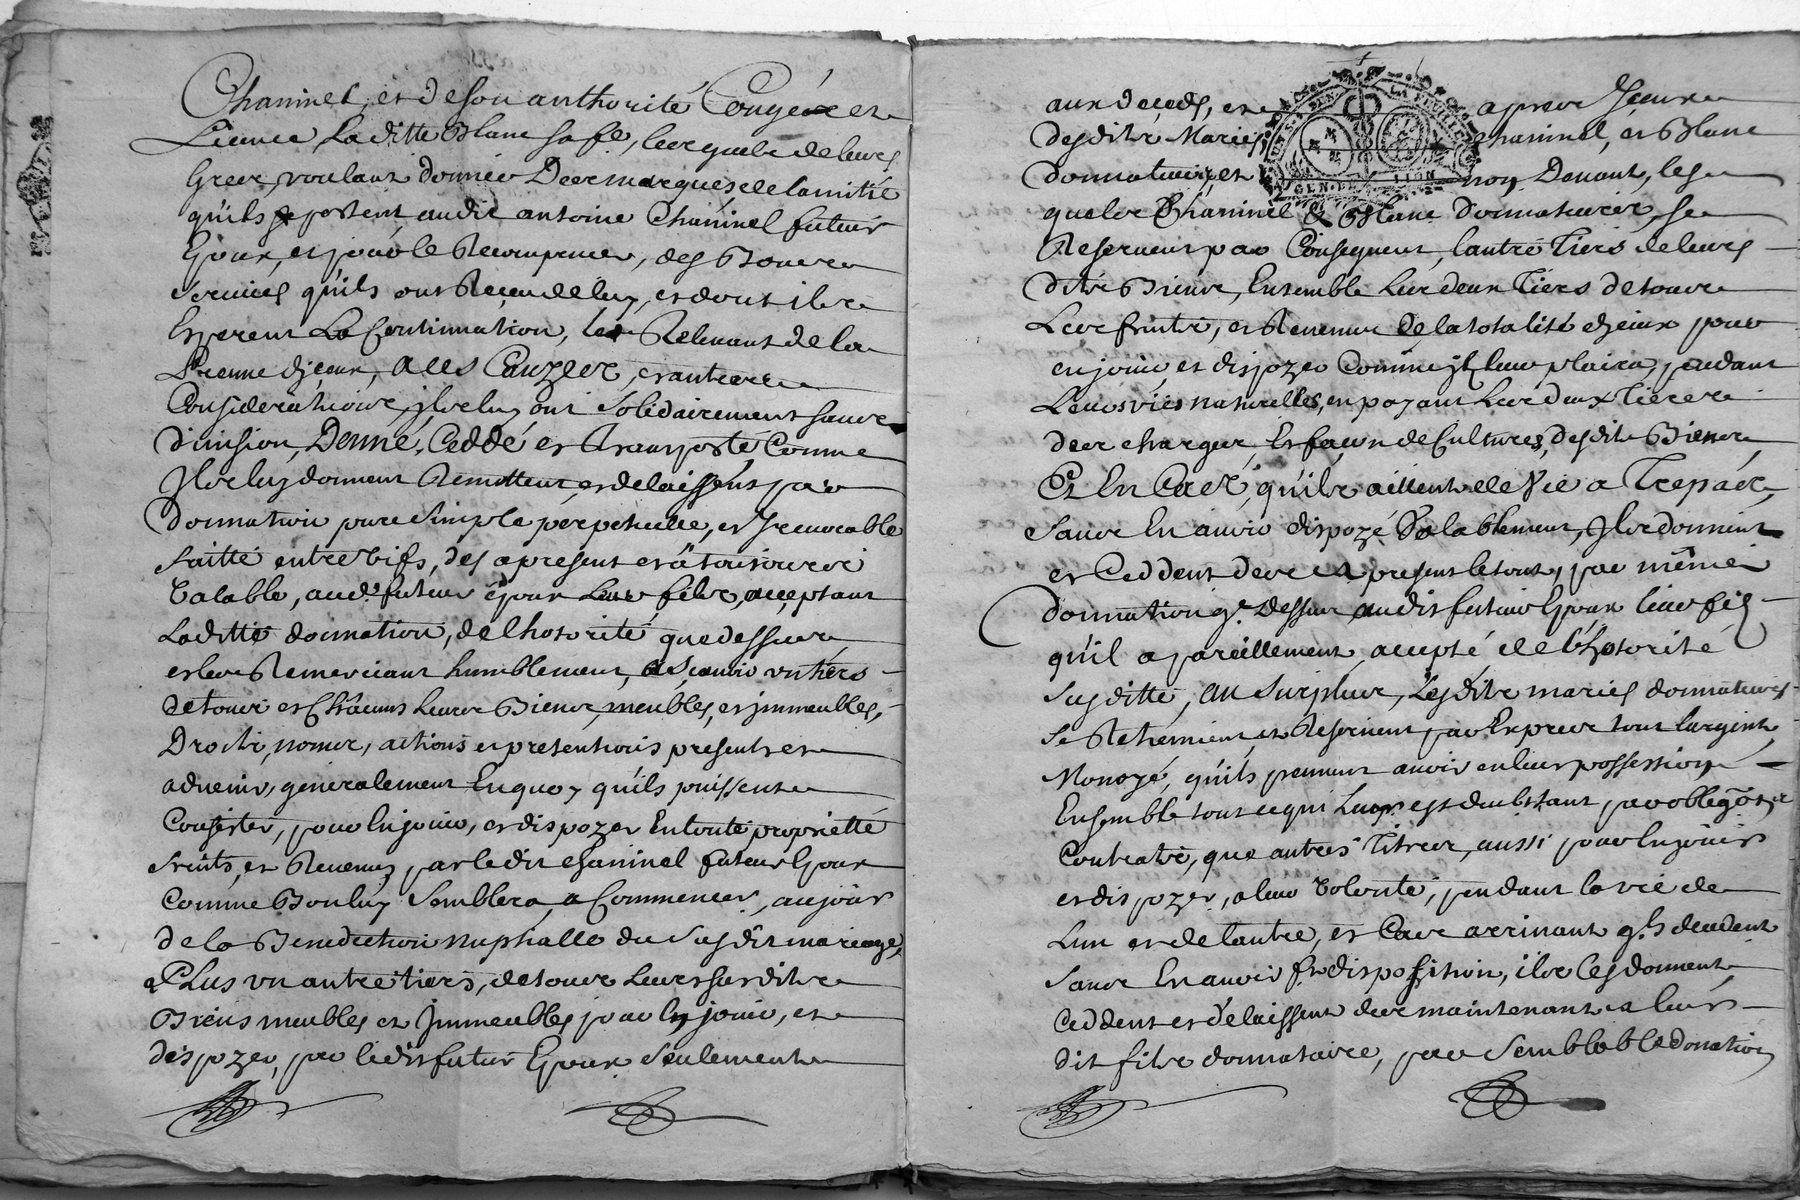 Chaninel, et de son authorité Congé et
Licence Laditte Blanc sa fe, lesquels de leurs
Greez voulant donner Des marques de lamitié
quils portent audit antoine Chaninel futur
Epoux, et pour le Recompencer, des Bons
Services quils ont Reçeu de luy, et dont ils
Esperent La Continuation, les Relevant de la
Preuve d'jceux, a ces Cauzes, et autres
Considerations, jls luy ont Solidairement sans
division, Donné, Ceddé et Transporté Comme
Jls luy donnent Remettent et delaissent par
donnation pure Simple perpetuelle, et Jrrevocable
faitte entre vifs, des apresent et a tousiours
Valable, audt futeur Epoux Leur fils, acceptant
Laditte donnation, de lhotorité que dessus
et les Remerciant humblement, a Scavoir un tiers
de tous et Chacuns Leurs Biens, meubles, et jmmeubles,
Droits, noms, actions et pretentions presents et
advenir, generalement En quoy quils puissent
Consister, pour En jouir, et dispozer En toute propriette
fruits, et Revenus par ledit Chaninel futeur Epoux
Comme Bon luy Semblera, a Commencer, au jour
de la Benediction nuptialle du Susdit mariage,
Plus un autre tiers, de tous Leurs susdits
Biens meubles et Jmmeubles pour En jouir, et
dispozer, par ledit futur Epoux Seulement
aux deçeds, et apres Jceux
desdits Mariés Chaninel, et Blanc
donnateurs, et non Devant, les
quels Chaninel & Blanc Donnateurs, se
Reservent par Consequent, lautre Tiers de leurs
dits Biens, Ensemble Les deux Tiers de tous
Les fruits, et Revenus de la totalité d'jceux pour
en jouir, et dispozer Comme jl leur plaira, pendant
Leurs vies naturelles, en payant Les deux Tiers
des charges, Et façon de Cultures, desdits Biens
Et En Cas, quils aillent de Vie a Trepas,
Sans En avoir dispozé Valablement, Jls donnent
et Ceddent des apresent le tout, par même
donnation qe Dessus audit futur Epoux leur fils
quil a pareillement accepté de Lhotorité
Susditte, au Surplus, Lesdits mariés donnateurs
Se Retiennent, et Reservent par Exprez tout largent,
Monoyé, quils peuvent avoir en leur possession
Ensemble tout ce qui Leur est deub tant par obligaons
Contrats, que autres Titres, aussi pour En jouir
et dispozer, a leur Volonté, pendant la vie de
Lun et de lautre, et Cas arrivant qls decedent
Sans En avoir ft disposition, ils les donnent,
Ceddent et delaissent des maintenant a leur
dit fils donnataire, par Semblable donation